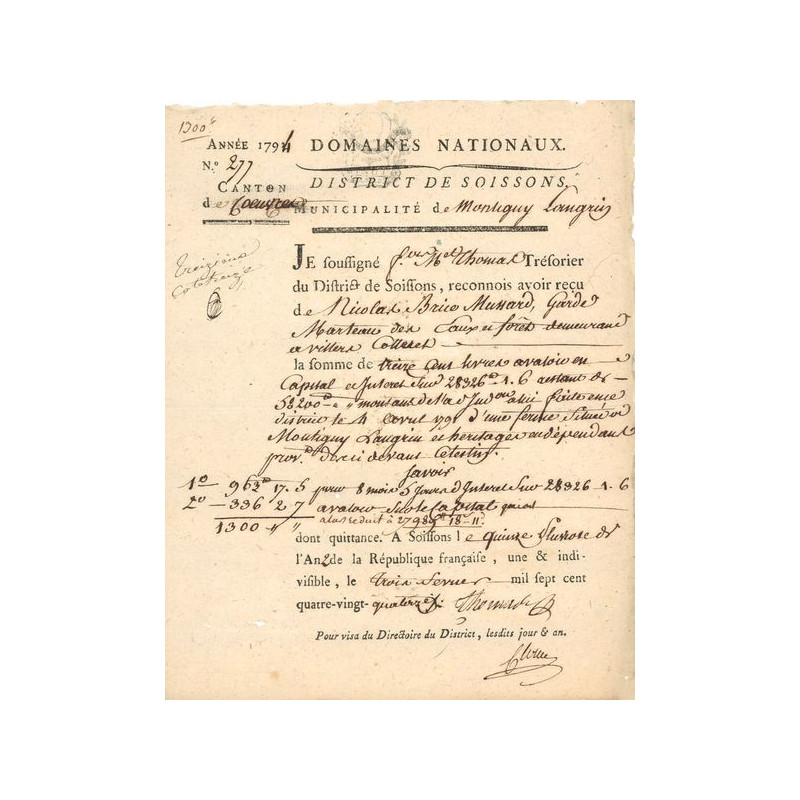 1300#
ANNÉE 1794 DOMAINES NATIONAUX.
N.° 277
CANTON DISTRICT DE SOISSONS,
de Coeuvres MUNICIPALITÉ de Montiguy Langrin
JE soussigné Thomas Trésorier
du District de Soissons, reconnois avoir reçu
de Nicolas Brice Mussard, Garde
Marteau des Eaux et forêts demeurant
a villers Cotterets
la somme de treize Cent livres avaloir en
Capital et Interet Sur 28326# 1. 6 restant de
58200# faite en ce
district le 4 avril 1791 d'une ferme Située a
Montiguy Langrin et heritages en dépendant
prov.t des ci devant Celestins.
Savoir
1° 963# 17. 5 pour 8 mois 5 Jours d'Interet Sur 28326 1. 6
2° 336 2 7 avaloir Sur le Capital qui est
1300 " " alors réduit à 27989# 18 11.
dont quittance. A Soissons le quinze Pluviose de
l'An 2 de la République françaisse, une & indi-
visible, le trois fevrier mil sept cent
quatre-vingt-quatorze. Thomas
Pour visa du Directoire du District, lesdits jour & an.